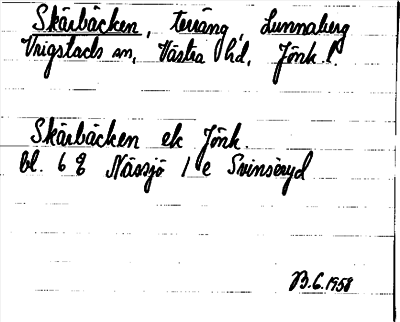 Skärbäcken, terräng, Lunnaberg
Vrigstads sn, Västra hd, Jönk. l.
Skärbäcken ek Jönk.
bl. 6 E Nässjö 1 e Svinseryd
B.G. 1958